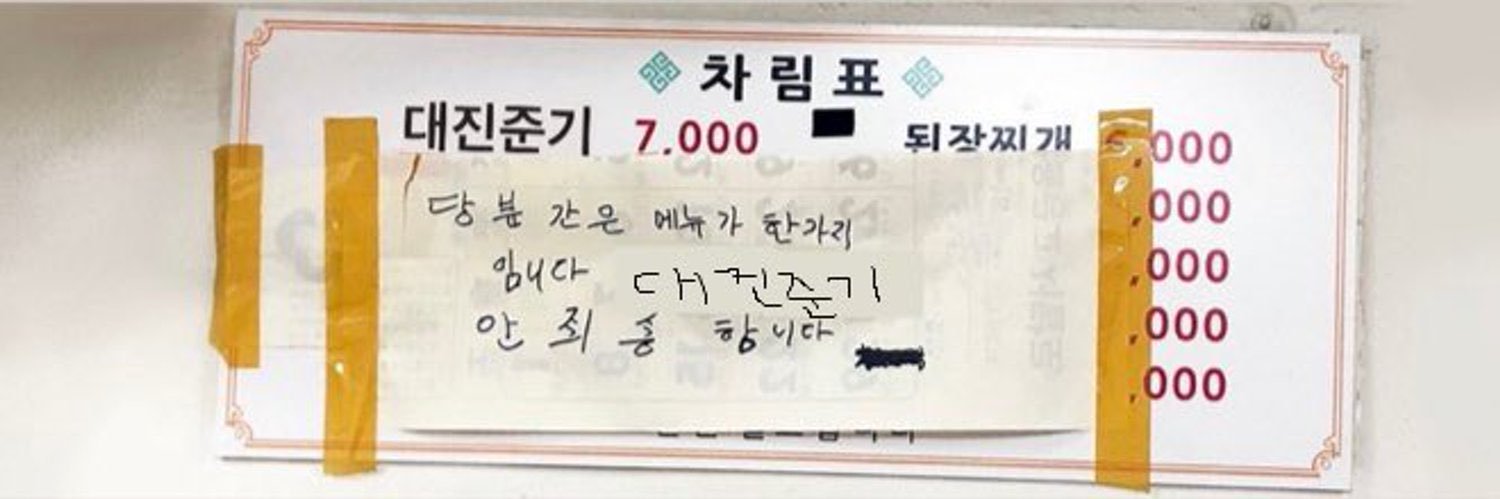 차림표
대진준기 7.000 된장찌개 ,000
당분간은 메뉴가 한가지 ,000
입니다 대진준기 ,000
안 죄송합니다 ,000
,000